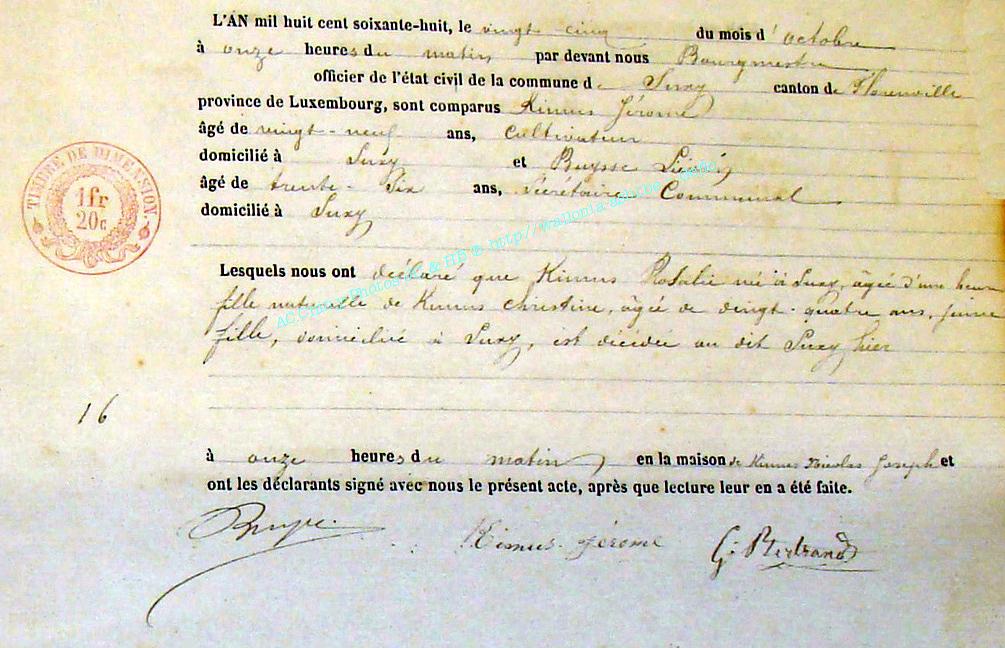 L'AN mil huit cent soixante-huit, le vingt cinq du mois d'octobre
à onze heures du matin par devant nous Bourgmestre
officier de l'état civil de la commune de Suxy canton de Florenville
province de Luxembourg, sont comparus Kimus Jérome
âgé de vingt-neuf ans, Cultivateur
domicilié à Suxy et Buysse
âgé de trente-six ans, Secrétaire Communal
domicilié à Suxy
TIMBRE DE DIMENSION.
1fr
20c
Lesquels nous ont déclaré que Kimus Rosalie né à Suxy, agée d'une heure
fille naturelle de Kimus Christine, âgée de vingt-quatre ans,
fille, domiciliée à Suxy, est décédée au dit Suxy hier
16
à onze heures du matin en la maison de Kimus Nicolas Joseph et
ont les déclarants signé avec nous le présent acte, après que lecture leur en a été faite.
Buysse. Kimus Jérome G. Bertrand